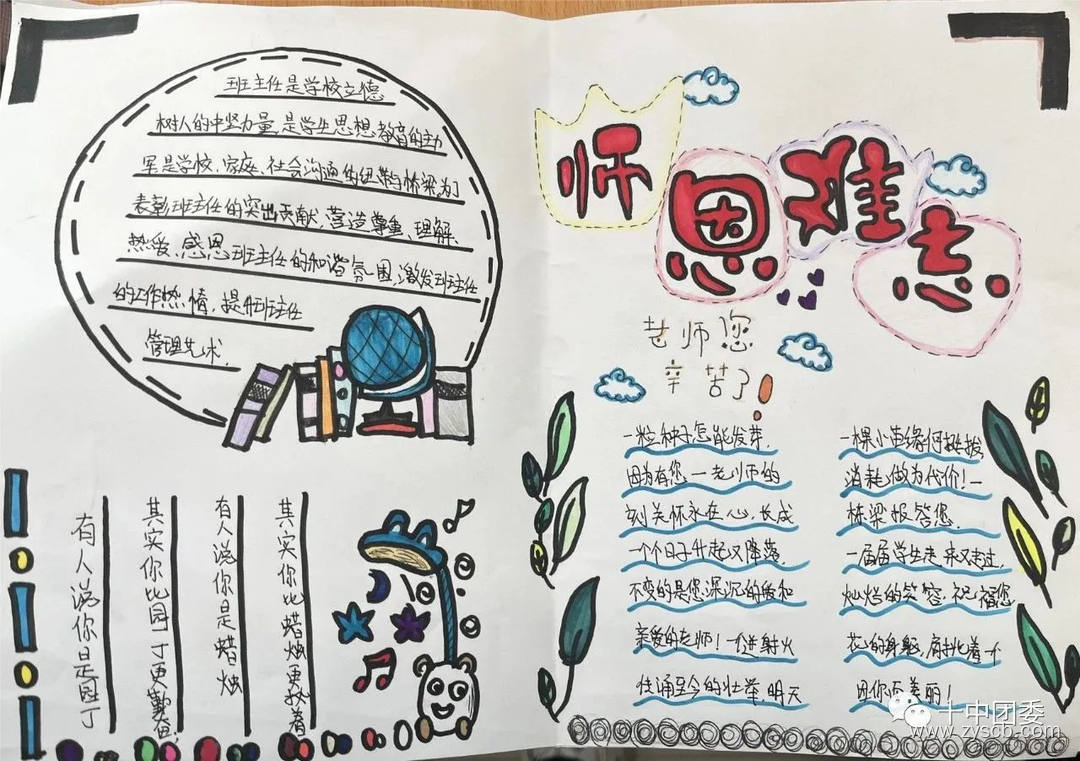 班主任是学校立德
树人的中坚力量,是学生思想教育的主力
军是学校、家庭、社会沟通的纽带与桥梁,为了
表彰班主任的突出贡献,营造尊重、理解、
热爱、感恩班主任的和谐氛围,激发班主任
的工作热情,提升班主任
管理艺术.
有人说你是园丁
其实你比园丁更勤奋
有人说你是蜡烛
其实你比蜡烛更执着
师恩难忘
老师您
辛苦了!
一粒种子怎能发芽,
因为有您一老师的
刻关怀永在心,长成
一个个日子升起又降落,
不变的是您深沉的暖和
亲爱的老师!一位进射火
传诵至今的壮举,明天
一棵小苗缘何挺拔
消耗做为代价!一
栋梁报答您.
一届届学生走来又走过,
灿烂的笑容.祝福您,
花的身躯,肩挑着一个
因你而美丽!
十中团委
www.zyscb.com